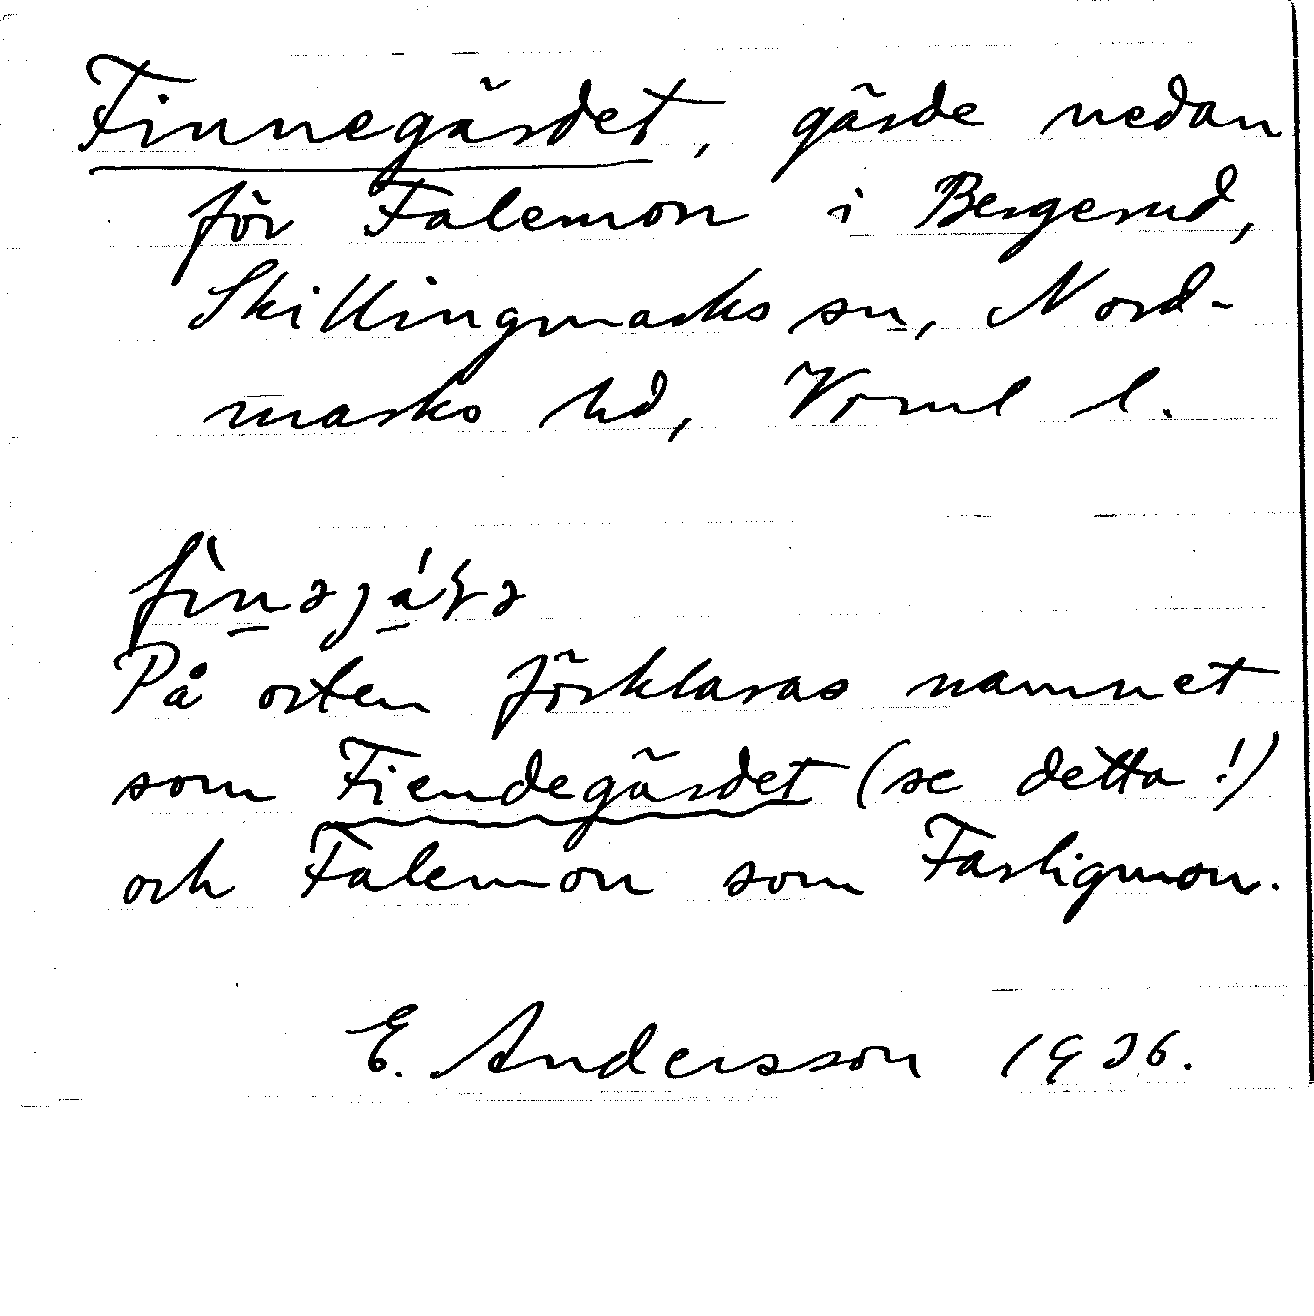 Finnegärdet, gärde nedan
för Falemon i Bergerud,
Skillingmarks sn, Nord-
marks hd, Vrml l.
På orten förklaras namnet
som Fiendegärdet (se detta!)
och Falemon som Farligmon.
E. Andersson 1936.